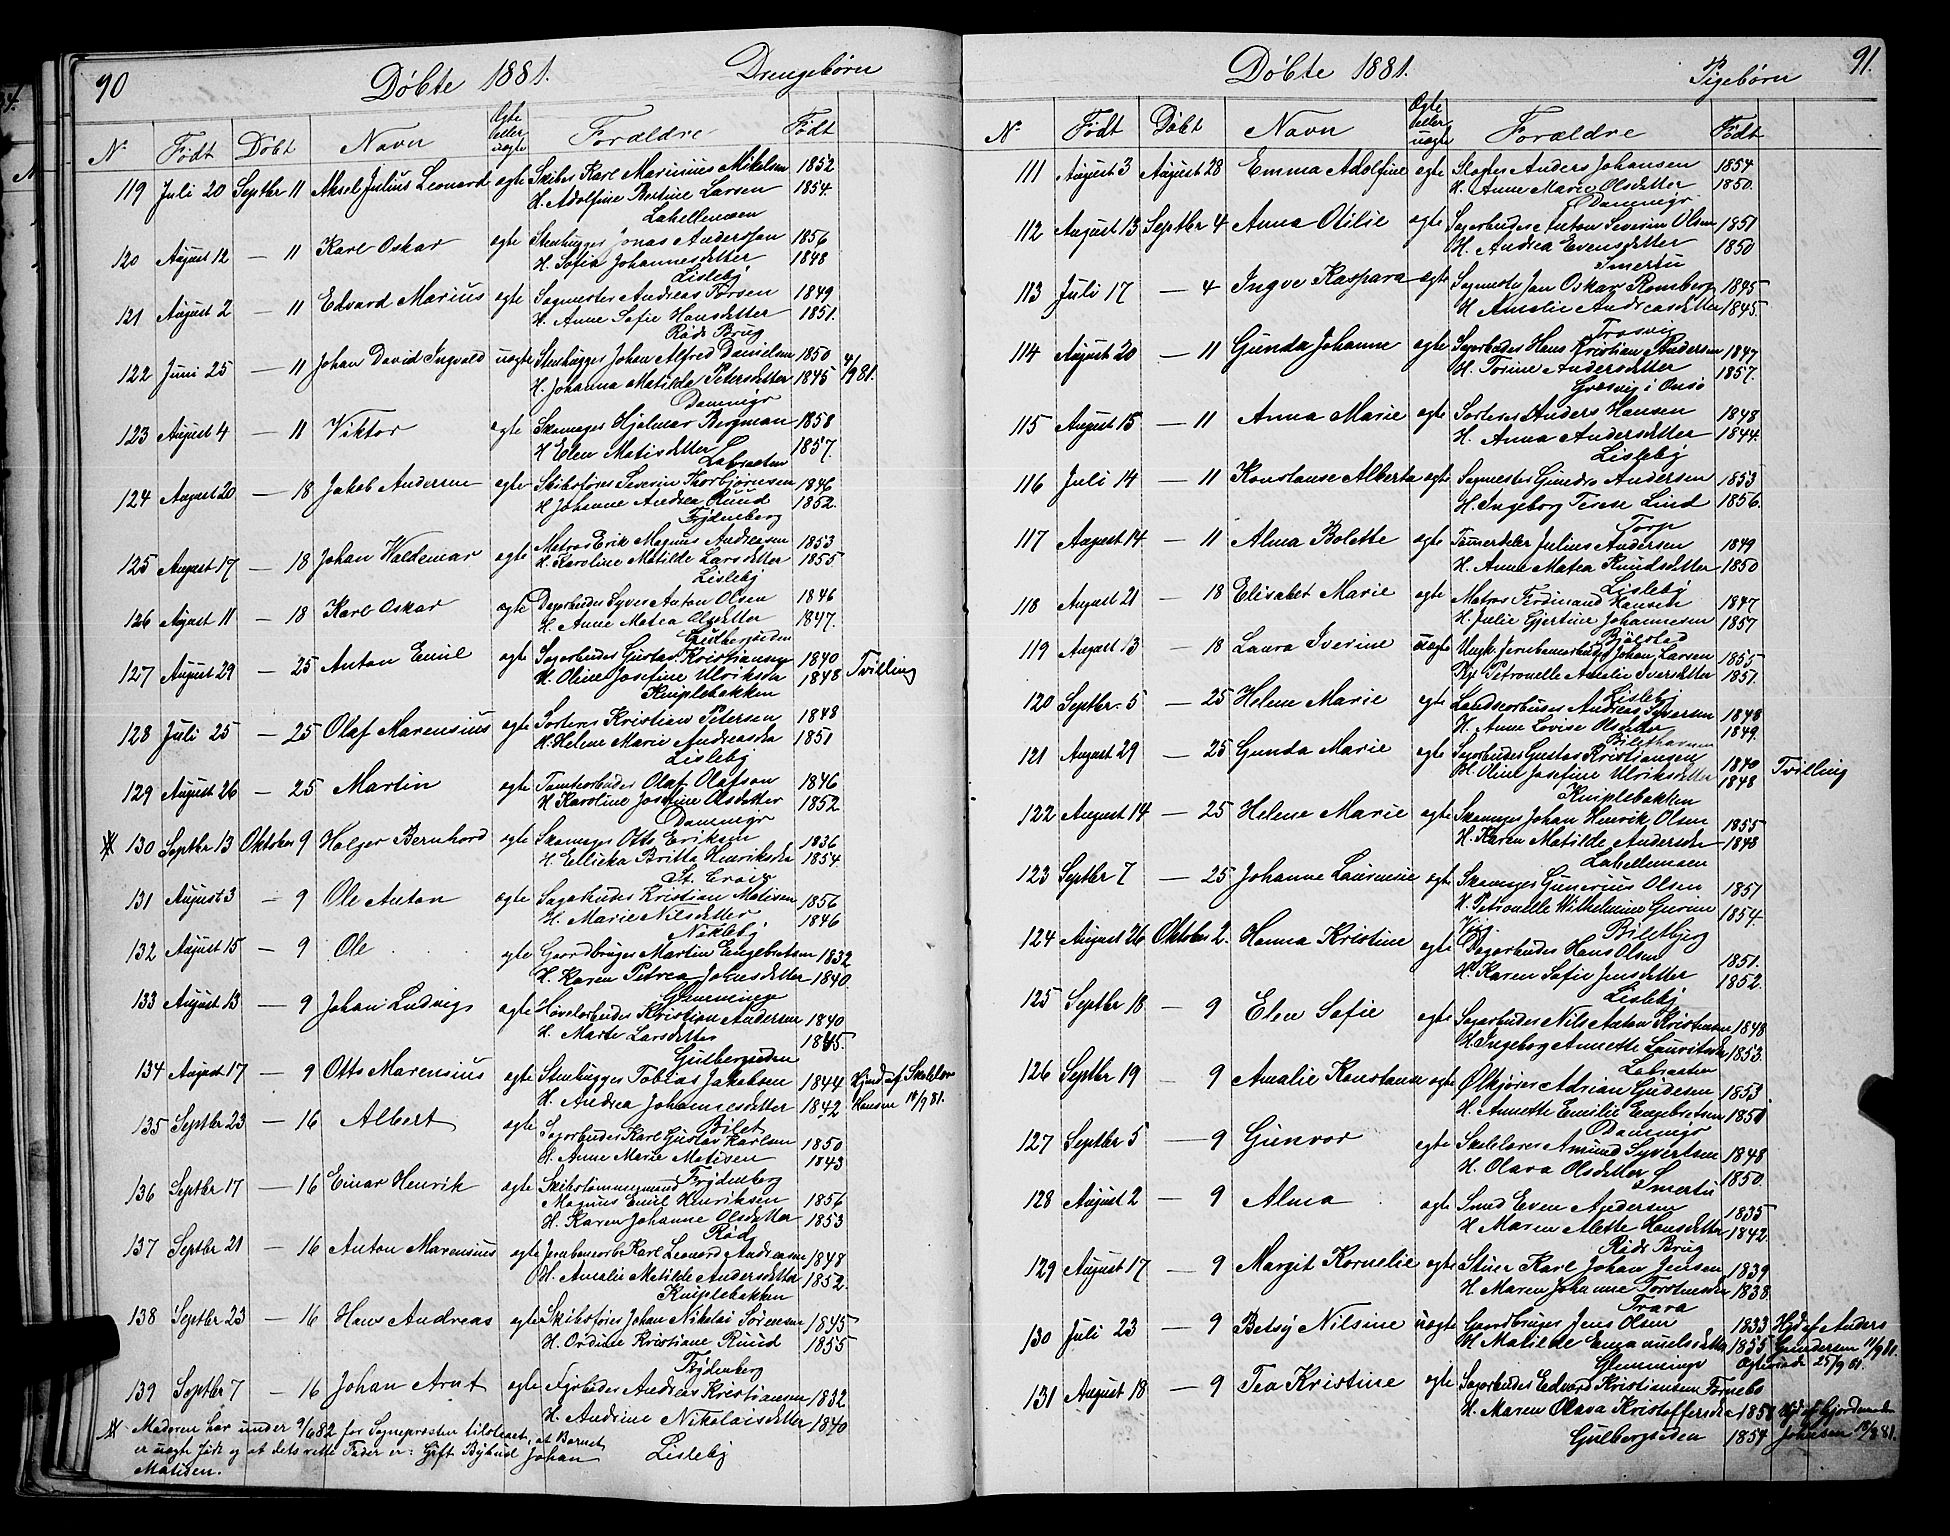 90 Døbte 1881. Drengebørn
N° Født Døbt Navn Ægte eller uægte Forældre Født
119 Juli 20 Septbr 11 Aksel Julius Leonard ægte Skibsr Karl Marinius Mikelsen 1852
H. Adolfine Bertine Larsen 1854.
Labellemoen
120 August 12 — 11 Karl Oskar ægte Stenhugger Jonas Andersson 1856
H. Sofia Johannesdatter 1848
Lisleby
121 August 2 — 11 Edvard Marius ægte Sagmester Andreas Torsen 1849
H. Anne Sofie Hansdatter 1851.
Røds Brug
122 Juni 25 — 11 Johan David Ingvald uægte Stenhugger Johan Alfred Danielsen 1850 4/9 81.
H. Johanna Matilda Petersdatter 1845
Dammyr
123 August 4 — 11 Viktor ægte Skomager Hjalmar Bergman 1858
H Elen Matisdatter 1857.
Labraaten
124 August 20 — 18 Jakob Andersen ægte Skibsfører Severin Thorbjørnsen 1846
H Johanne Andrea Ruud 1852.
Frydenberg
125 August 17 — 18 Johan Waldemar ægte Matros Erik Magnus Andreasen 1853
H. Karoline Matilde Larsdatter 1855
Lisleby
126 August 11 — 18 Karl Oskar ægte Dagarbeider Syver Anton Olsen 1846
H. Anne Matea Olsdatter 1847.
127 August 29 — 25 Anton Emil ægte Sagarbeider Gustav Kristiansen 1840 Tvilling
H. Oline Josefine Ulriksda 1848
Kniplebakken
128 Juli 25 — 25 Olaf Marensius ægte Sorterer Kristian Petersen 1848
H. Helene Marie Andreasda 1851
Lisleby
129 August 26 — 25 Martin ægte Tomtearbeider Olaf Olafson 1846
H Karoline Josefine Olsdatter 1852.
Dammyr
※ 130 Septbr 13 Oktober 9 Holger Bernhard ægte Skomager Otto Eriksen 1836
H. Ellicka Britta Henriksda 1854.
St. Croix
131 August 3 — 9 Ole Anton ægte Sagarbeider Kristian Matisen 1856
H. Marie Nilsdatter 1846
Nokleby
132 August 15 — 9 Ole ægte Gaardbruger Martin Engebretsen 1832
H. Karen Petrea Johnsdatter 1840.
Glemminge
133 August 13 — 9 Johan Ludvig ægte Høvelarbeider Kristian Andersen 1840
H. Marte Larsdatter 1845.
Gulbergsiden
134 August 17 — 9 Otto Marensius ægte Stenhugger Tobias Jakobsen 1844 Hjmd af Skolelær
H. Andrea Johannesdatter 1842 Hansen 18/9 81.
Bilet
135 Septbr 23 — 16 Albert ægte Sagarbeider Karl Gustav Karlsen 1850
H. Anne Marie Matisen 1843
Frydenberg
136 Septbr 17 — 16 Einar Henrik ægte Skibstømmermand
Magnus Emil Henriksen 1856
H. Karen Johanne Olsdatter 1853
Rød
137 Septbr 21 — 16 Anton Marensius ægte Jernbanearbr Karl Leonard Andreasen 1848
H. Amalie Matilde Andersdatter 1852.
Kniplebakken
138 Septbr 23 — 16 Hans Andreas ægte Skibsfører Johan Nikolai Sørensen 1845
H. Ordine Kristiane Ruud 1855
Frydenberg
139 Septbr 7 — 16 Johan Arnt ægte Fyrbøder Andreas Kristiansen 1832
H. Andrine Nikolaisdatter 1840
Lisleby
※ Moderen har under 9/6 82 for Sognepræsten tilstaaet, at Barnet
er uægte født og at dets rette Fader er: Gift Bybud Johan
Matisen.

Døbte 1881. Pigebørn 91.
N° Født Døbt Navn Ægte eller uægte Forældre Født
111 August 3 August 28 Emma Adolfine ægte Slagter Anders Johansen 1854
H. Anne Marie Olsdatter 1850.
Dammyr
112 August 13 Septbr 4 Anna Otilie ægte Sagarbeider Anton Severin Olsen 1851
H. Andrea Evensdatter 1850
Smertu
113 Juli 17 — 4 Ingve Kaspara ægte Sagmester Jan Oskar Romberg 1845
H Amalie Andreasdatter 1845.
Trosvig
114 August 20 — 11 Gunda Johanne ægte Sagarbeider Hans Kristian Andersen 1847
H. Torine Andersdatter 1857.
Græsvig i Onsø
115 August 15 — 11 Anna Marie ægte Sorterer Anders Hansen 1848
H. Anna Andersdatter 1844.
Lisleby
116 Juli 14 — 11 Konstanse Alberta ægte Sagmester Gunder Andersen 1853
H. Ingeborg Terese Lind 1856.
Torp
117 August 14 — 11 Alma Bolette ægte Tømmerdeler Julius Andersen 1849
H. Anne Matea Knudsdatter 1850
Lisleby
118 August 21 — 18 Elisabet Marie ægte Matros Ferdinand Hansen 1847
H. Julie Gjertine Johannesen 1857
Bjølstad
119 August 13 — 18 Laura Iverine uægte Ungk. Jernbanearbeider Johan Larsen 1855
Pige Petronelle Amalie Iversdatter 1851.
Lisleby
120 Septbr 5 — 25 Helene Marie ægte Landsarbeider Andreas Syversen 1848
H. Anne Lovise Olsdatter 1849.
121 August 29 — 25 Gunda Marie ægte Sagarbeider Gustav Kristiansen 1840 Tvilling
H. Oline Josefine Ulriksdatter 1848
Kniplebakken
122 August 14 — 25 Helene Marie ægte Skomager Johan Henrik Olsen 1855
H. Karen Matilde Andersda 1848
Labellemoen
123 Septbr 7 — 25 Johanne Laurensie ægte Skomager Gunerius Olsen 1851
H. Petronelle Wilhelmine Gurine 1854.
Viig Biletbyg
124 August 26 Oktober 2. Hanna Kristine ægte Dagarbeider Hans Olsen 1851.
H. Karen Sofie Jensdatter 1852.
Lisleby
125 Septbr 18 — 9 Elen Sofie ægte Sagarbeider Nils Anton Kristiansen 1848
H Ingeborg Annette Lauritsda 1853.
Labraaten
126 Septbr 19 — 9 Amalie Konstanse ægte Ølkjører Adrian Gudesen 1853
H. Annette Emilie Engebretsen 1851
Dammyr
127 Septbr 5 — 9 Gunvor ægte Skolelærer Amund Syvertsen 1848
H. Olava Olsdatter 1850.
Smertu
128 August 2 — 9 Alma ægte Smed Even Andersen 1835
H Maren Alette Hansdatter 1842.
Røds Brug
129 August 17 — 9 Margit Kornelie ægte Stuer Karl Johan Jensen 1839
H Maren Johanne Torstensda 1838.
Trara
130 Juli 23 — 9 Betsy Nilsine uægte Gaardbruger Jens Olsen 1833 Hjd af Anders
H Matilde Emanuelsdatter 1855 Gundersen 11/9 81.
Glemminge Ægteviede 25/9 81.
131 August 18 — 9 Tea Kristine ægte Sagarbeider Edvard Kristiansen Fornebo
H. Maren Olava Kristoffersda 1858 Hjd af Gjordemoder
Gulbergsiden 1854 Johnsen 18/8 81.